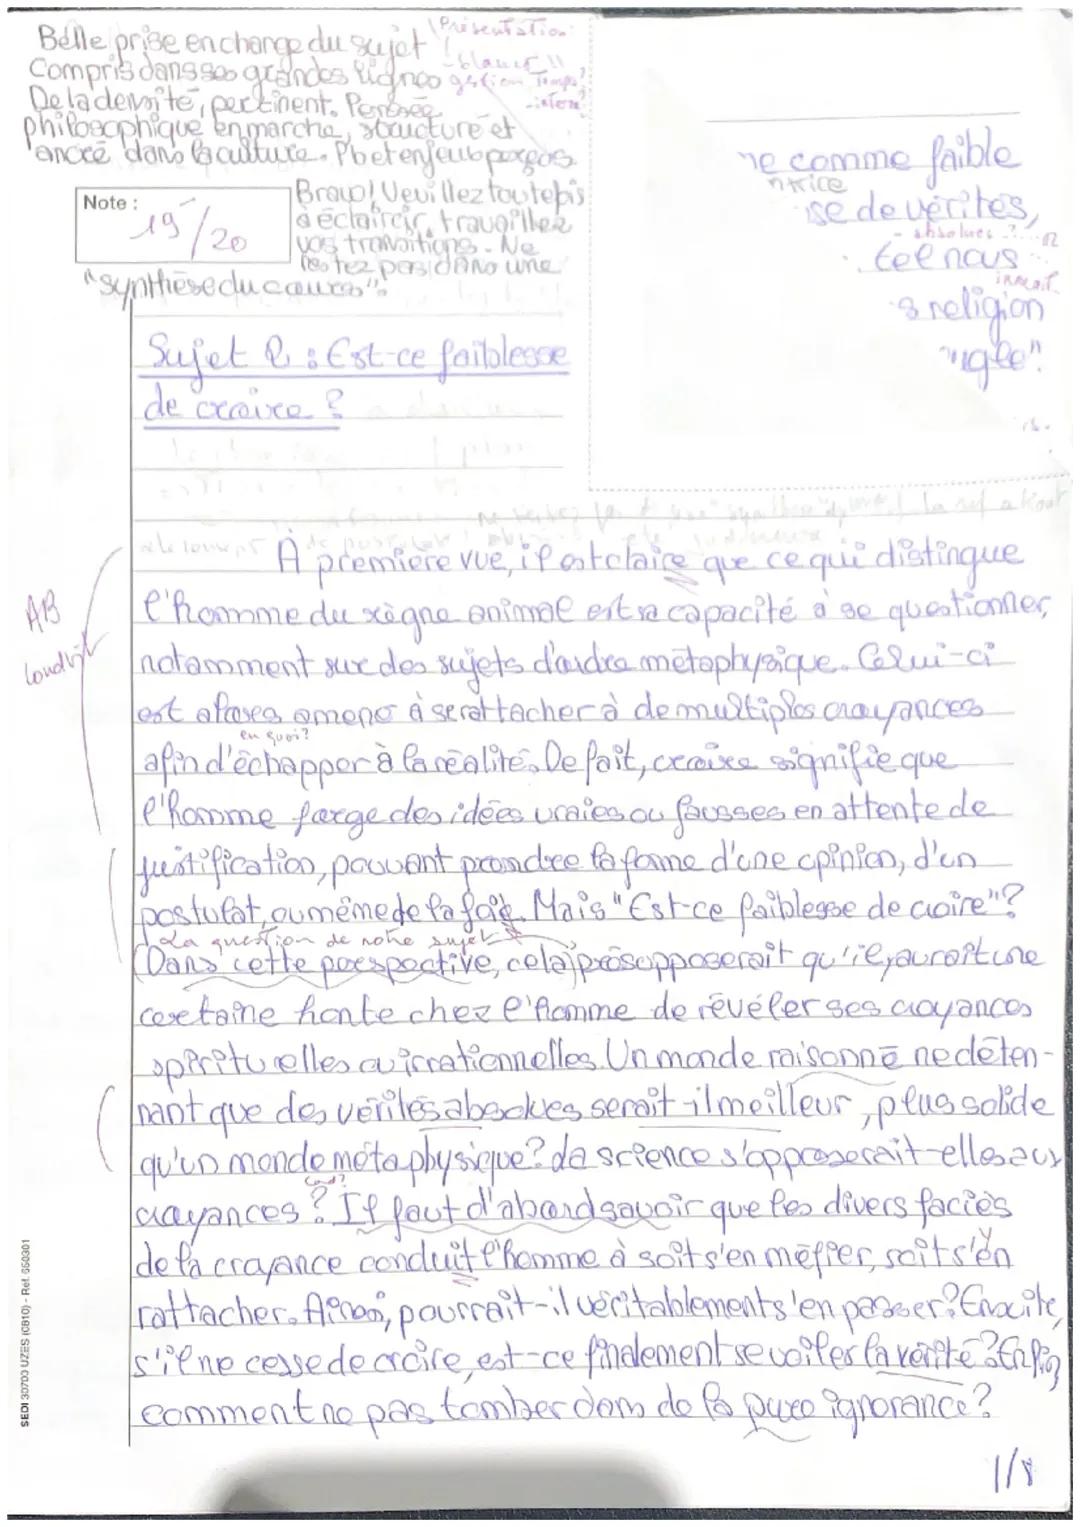 Belle prise en charge du sujet !
Compris dans ses grandes lignes
De la densité, pertinent. Pensée
philosophique en marche, structuré et
ancré dans la culture. Pb et enjeux perçus.
Présentation:
- blanc !!
gestion Temps?
Note :
19/20
Bravo! Veuillez toutefois
à éclaircir, travailler
vos transitions. Ne
restez pas dans une
"synthèse du cours".
ne comme faible
ntrice
se de vérités,
- absolues ?
tel nous
s religion
ugle".
Sujet 2 : Est-ce faiblesse
de croire ?
À première vue, il est claire que ce qui distingue
l'homme du règne animal est sa capacité à se questionner,
notamment sur des sujets d'ordre métaphysique. Celui-ci
est alors amené à se rattacher à de multiples croyances
en quoi?
afin d'échapper à la réalité. De fait, croire signifie que
l'homme forge des idées vraies ou fausses en attente de
justification, pouvant prendre la forme d'une opinion, d'un
postulat, ou même de la foi. Mais "Est-ce faiblesse de croire"?
La question de notre sujet
Dans cette perspective, cela présupposerait qu'il y aurait une
certaine honte chez l'homme de révéler ses croyances
spirituelles ou irrationnelles. Un monde raisonné ne déten-
nant que des vérités absolues serait-il meilleur, plus solide
qu'un monde métaphysique? La science s'opposerait-elle aux
croyances ? Il faut d'abord savoir que les divers faciès
de la croyance conduit l'homme à soit s'en méfier, soit s'y
rattacher. Ainsi, pourrait-il véritablement s'en passer? Ensuite,
s'il ne cesse de croire, est-ce finalement se voiler la vérité ? Enfin
comment ne pas tomber dans de la pure ignorance ?
AB
Conduit
SEDI 30700 UZÈS (CB10) - Réf. 650301
1/8